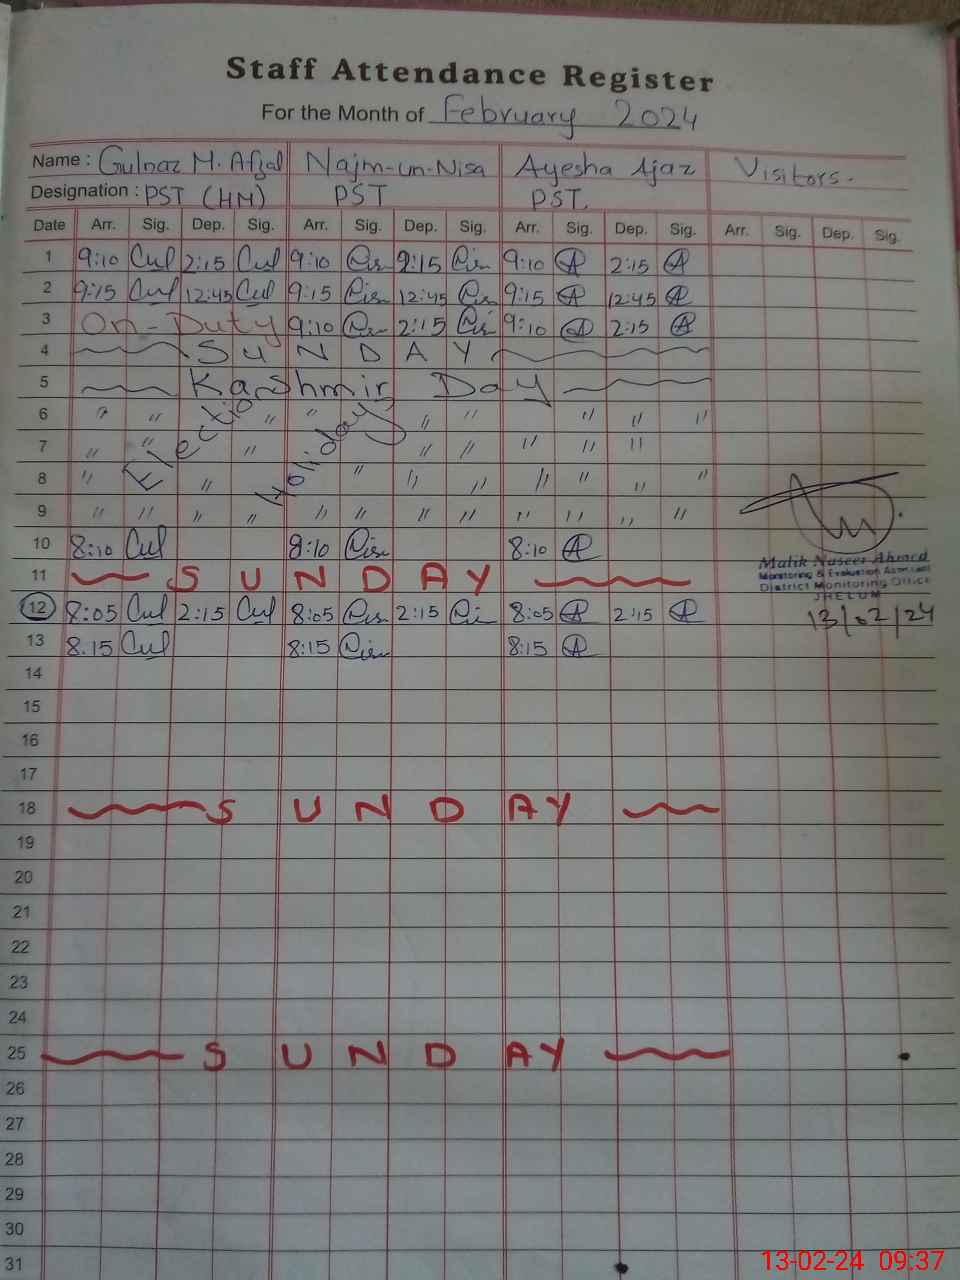 Staff Attendance Register
For the Month of February 2024
Name : Gulnaz M. Afzal Najm-un-Nisa Ayesha Ajaz Visitors.
Designation : PST (HM) PST PST.
Date Arr. Sig. Dep. Sig. Arr. Sig. Dep. Sig. Arr. Sig. Dep. Sig. Arr. Sig. Dep. Sig.
1 9:10 2:15 9:10 2:15 9:10 A 2:15 A
2 9:15 12:45 9:15 12:45 9:15 A 12:45 A
3 On-Duty 9:10 2:15 9:10 A 2:15 A
4 SUNDAY
5 Kashmir Day
6 " " " " " " " " "
7 " " " " " " " "
Election Holidays
8 " " " " " " " "
9 " " " " " " " " " " " "
10 8:10 8:10 8:10 A
Malik Naseer Ahmed
Monitoring & Evaluation Assistant
District Monitoring Office
JHELUM
13/02/24
11 SUNDAY
12 8:05 2:15 8:05 2:15 8:05 A 2:15 A
13 8.15 8:15 8:15 A
14
15
16
17
18 SUNDAY
19
20
21
22
23
24
25 SUNDAY
26
27
28
29
30
31
13-02-24 09:37